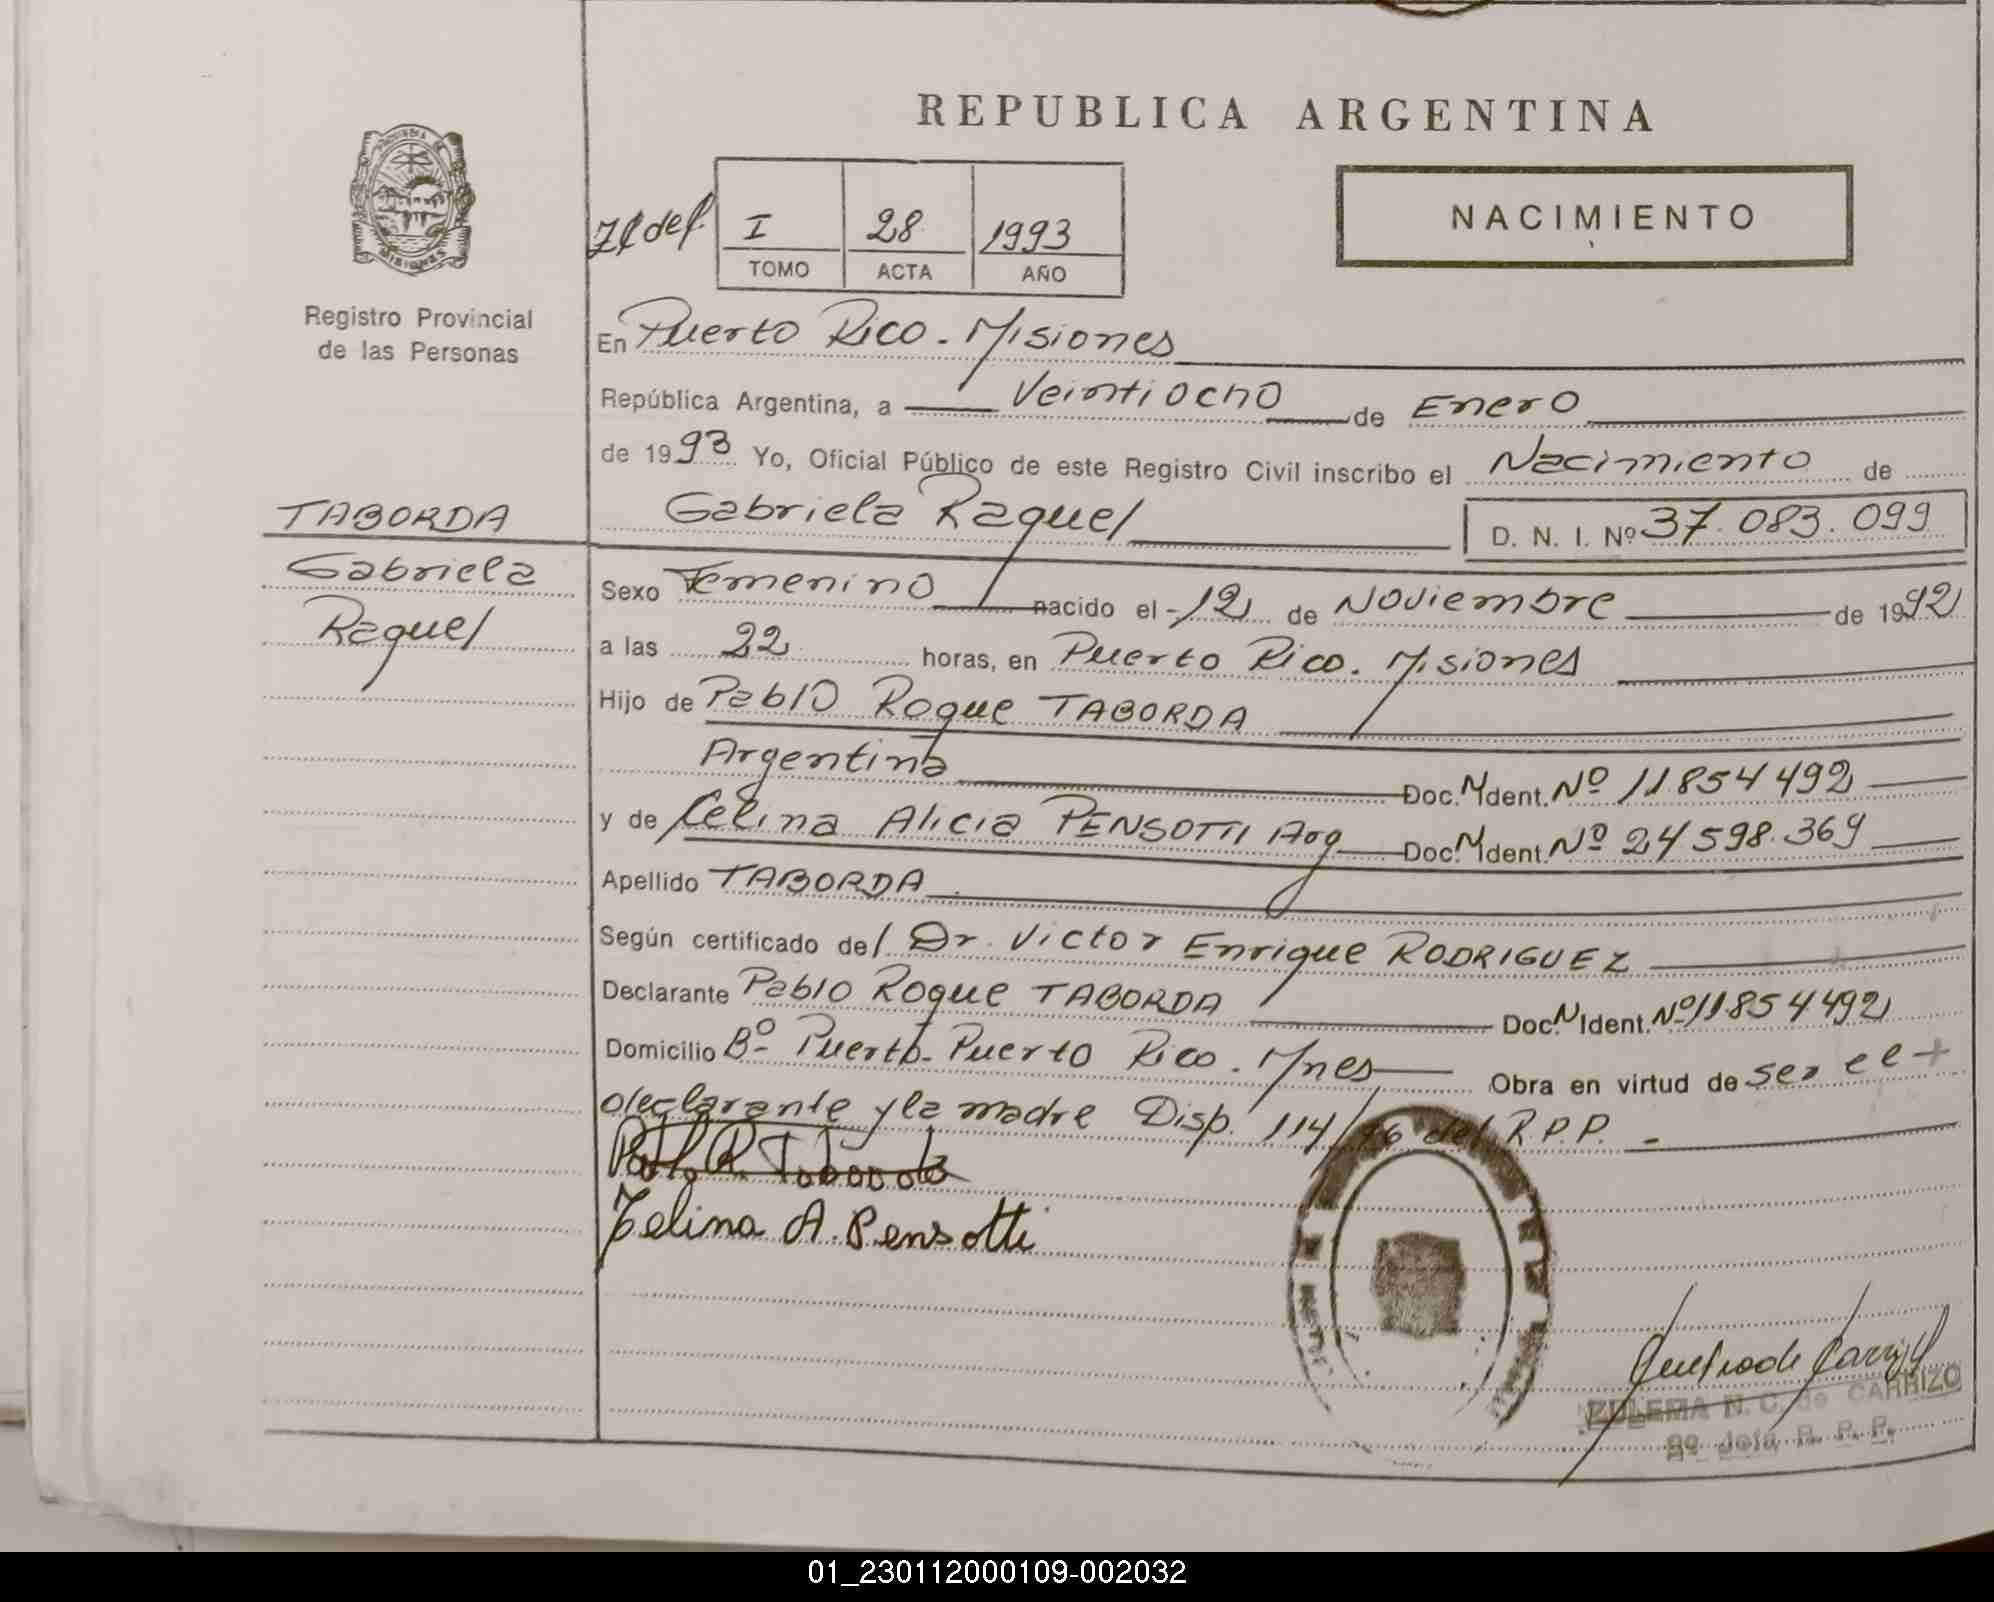 REPUBLICA ARGENTINA
PROVINCIA DE
MISIONES
Registro Provincial
de las Personas
I 28 1993
TOMO ACTA AÑO
NACIMIENTO
En Puerto Rico - Misiones
República Argentina, a Veintiocho de Enero
de 1993 Yo, Oficial Público de este Registro Civil inscribo el Nacimiento de
TABORDA
Gabriela Raquel D. N. I. Nº 37.083.099
Gabriela
Raquel
Sexo Femenino nacido el - 12 de Noviembre de 1992
a las 22 horas, en Puerto Rico. Misiones
Hijo de Pablo Roque TABORDA
Argentina Doc. N Ident. Nº 11854492
y de Celina Alicia PENSOTTI Arg Doc. N Ident. Nº 24598.369
Apellido TABORDA
Según certificado del Dr. Victor Enrique RODRIGUEZ
Declarante Pablo Roque TABORDA Doc. N Ident. Nº 11854492
Domicilio Bº Puerto - Puerto Rico. Mnes Obra en virtud de ser el
declarante y la madre Disp. 114/76 del R.P.P. -
Celina A. Pensotti
ZULEMA N. C. de CARRIZO
Jefa R. P. P.
01_230112000109-002032